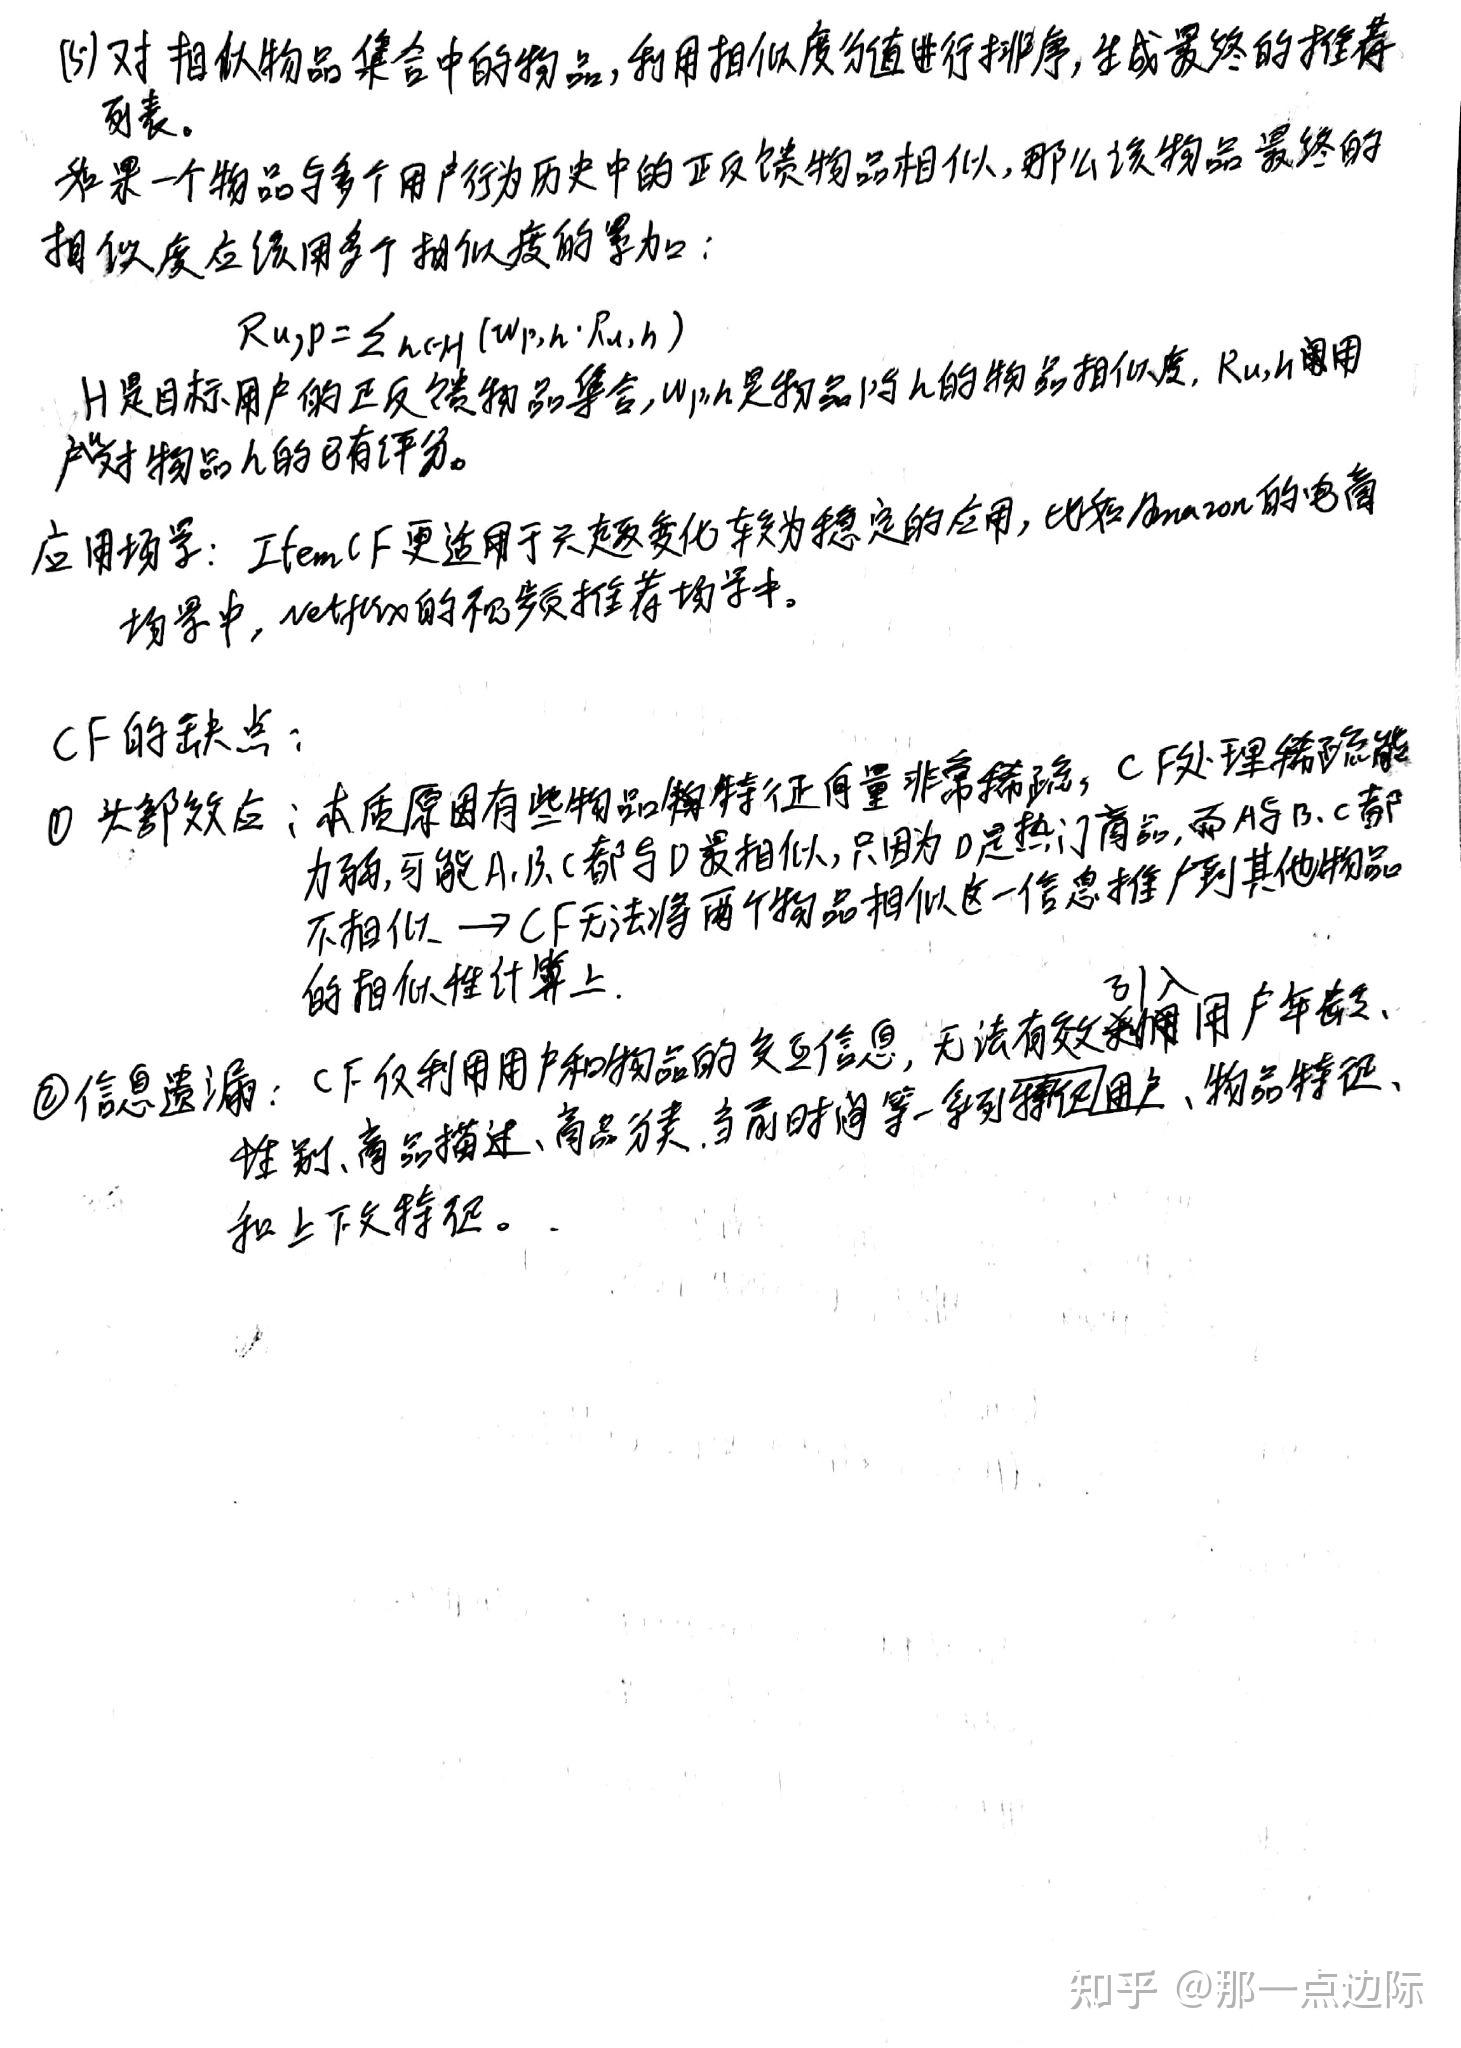 (5)对相似物品集合中的物品,利用相似度分值进行排序,生成最终的推荐
列表。
如果一个物品与多个用户行为历史中的正反馈物品相似,那么该物品最终的
相似度应该用多个相似度的累加:
Ru,p=∑h∈H(Wp,h·Ru,h)
H是目标用户的正反馈物品集合,Wp,h是物品p与h的物品相似度,Ru,h是用
户u对物品h的已有评分。
应用场景:ItemCF更适用于兴趣变化较为稳定的应用,比如Amazon的电商
场景中,Netflix的视频推荐场景中。
CF的缺点:
① 头部效应:本质原因有些物品特征向量非常稀疏,CF处理稀疏能
力弱,可能A、B、C都与D最相似,只因为D是热门商品,而A与B、C都
不相似 → CF无法将两个物品相似这一信息推广到其他物品
的相似性计算上.
②信息遗漏:CF仅利用用户和物品的交互信息,无法有效引入用户年龄、
性别、商品描述、商品分类、当前时间等一系列用户、物品特征、
和上下文特征。
知乎 @那一点边际